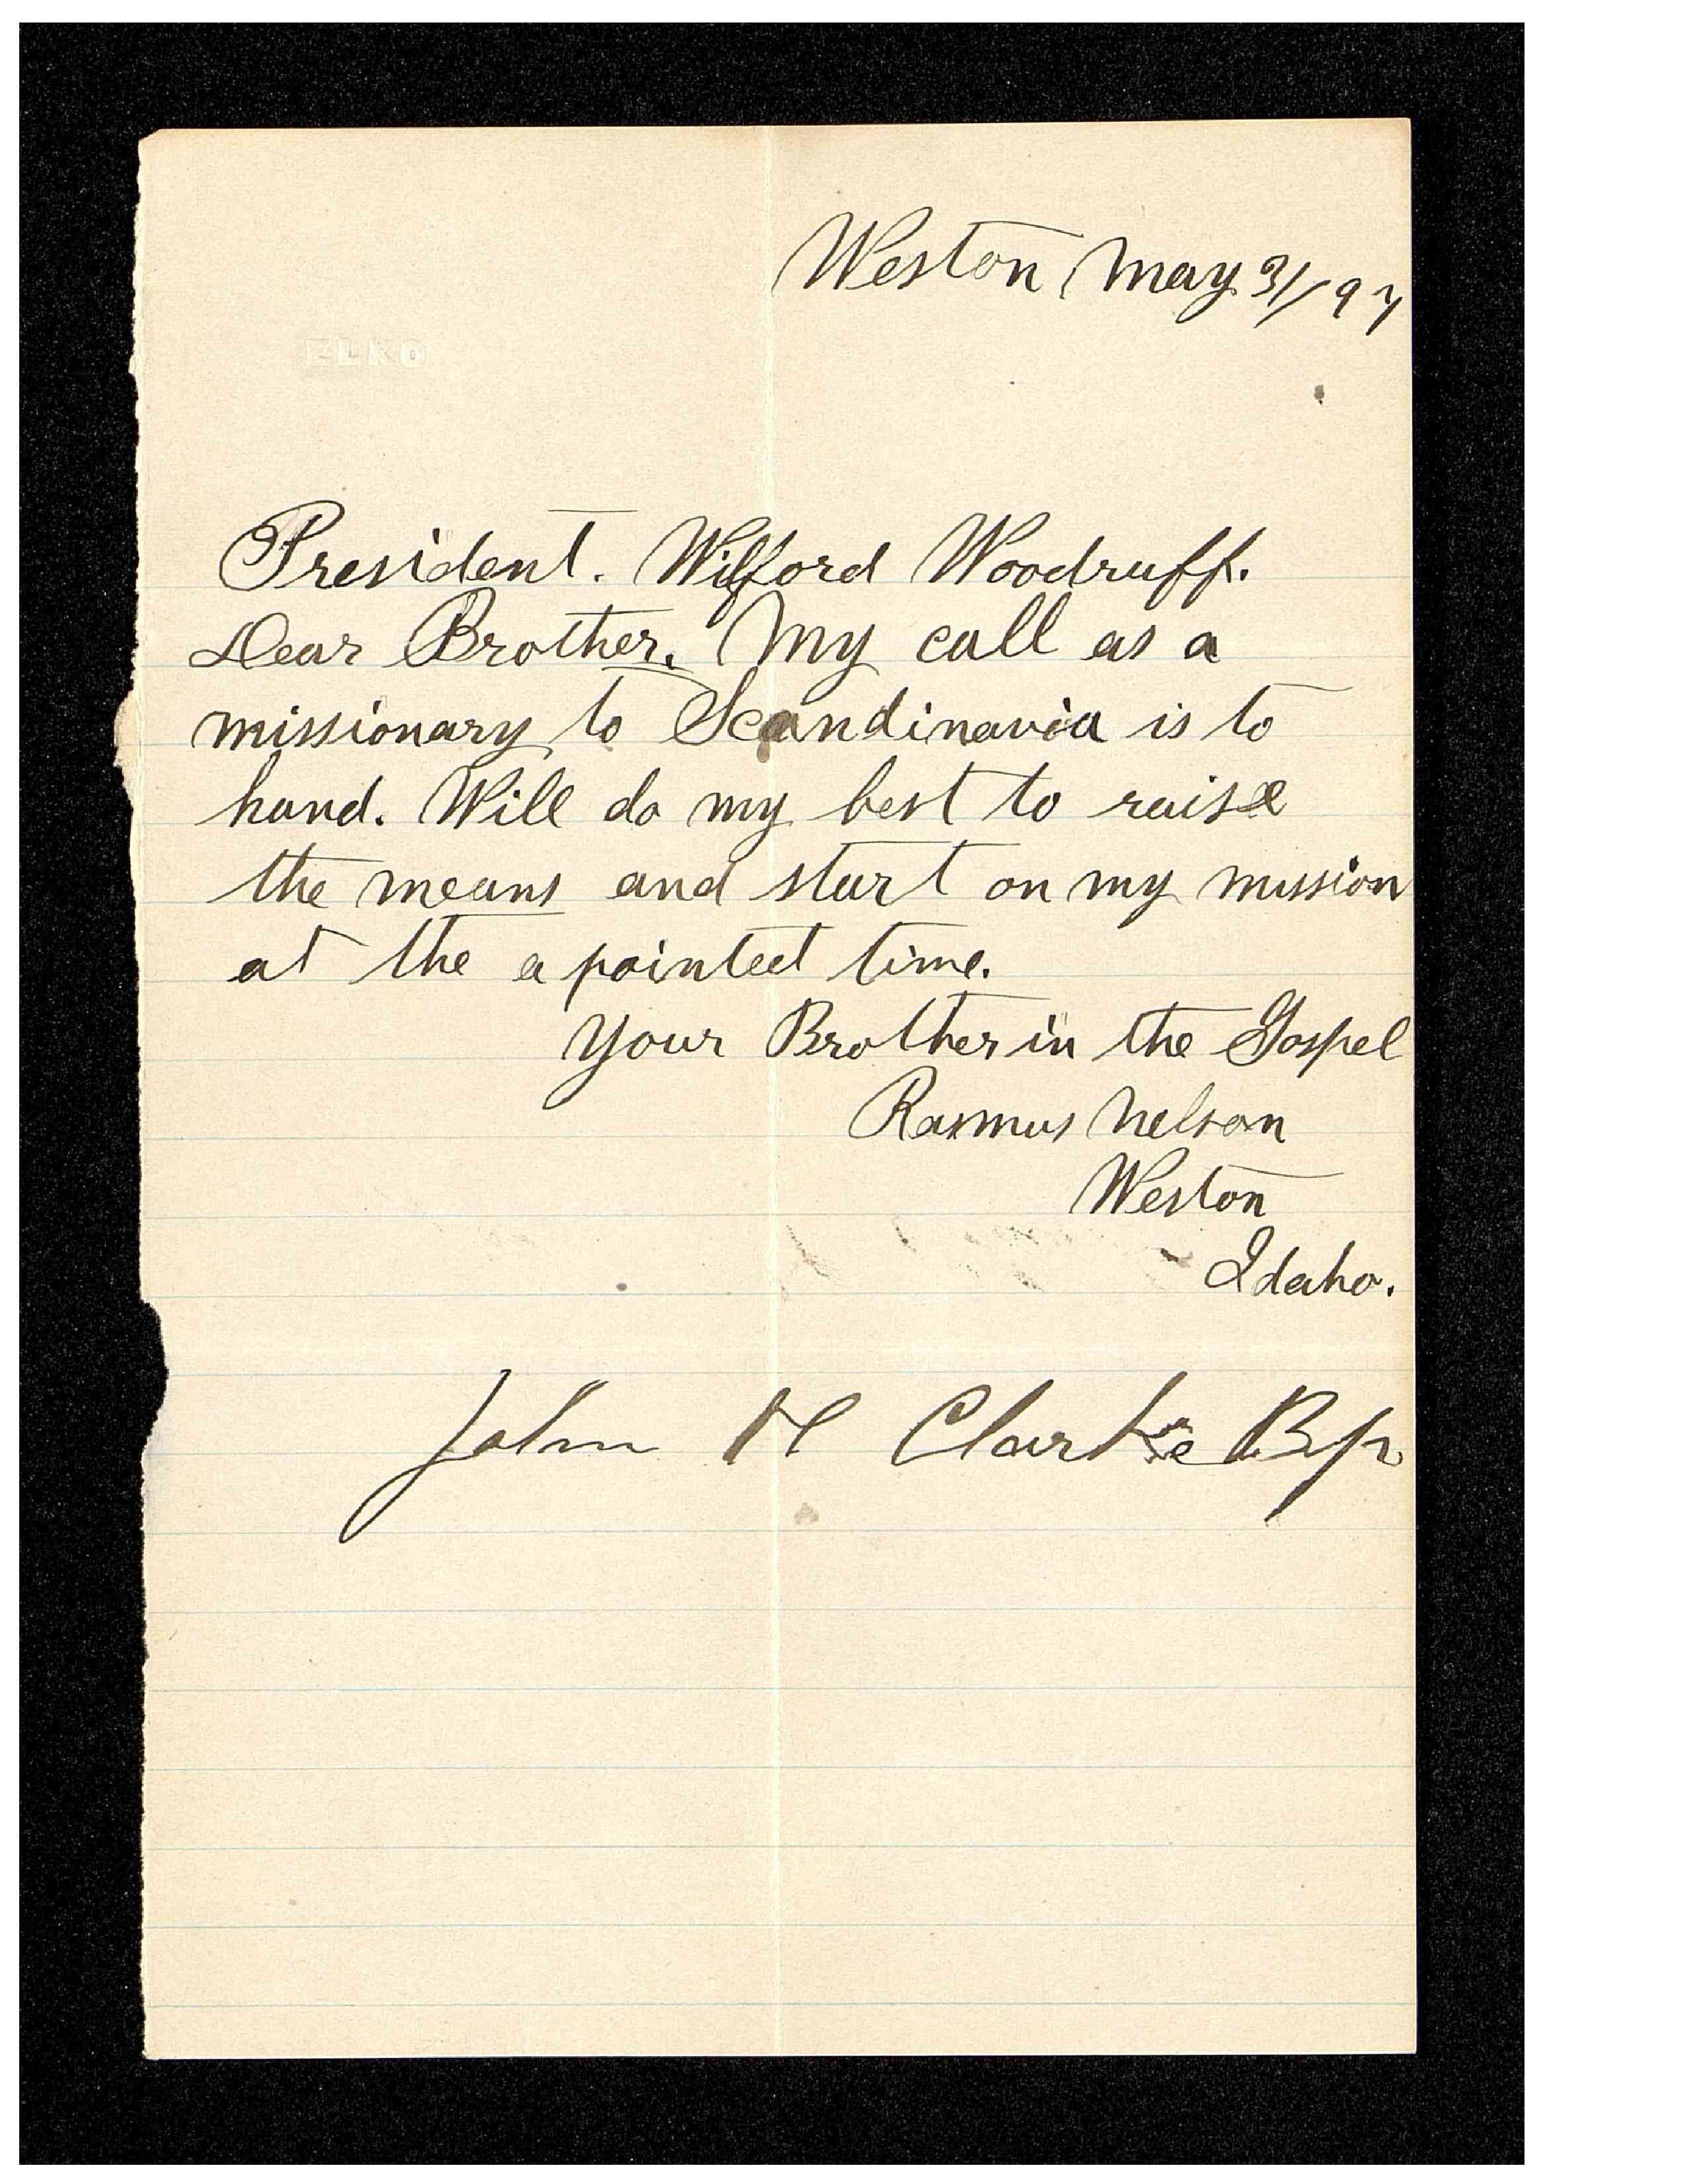 Weston May 31/97
ELKO
President. Wilford Woodruff.
Dear Brother. My call as a
missionary to Scandinavia is to
hand. Will do my best to raise
the means and start on my mission
at the apointed time.
Your Brother in the Gospel
Rasmus Nelson
Weston
Idaho.
John H Clarke Bp